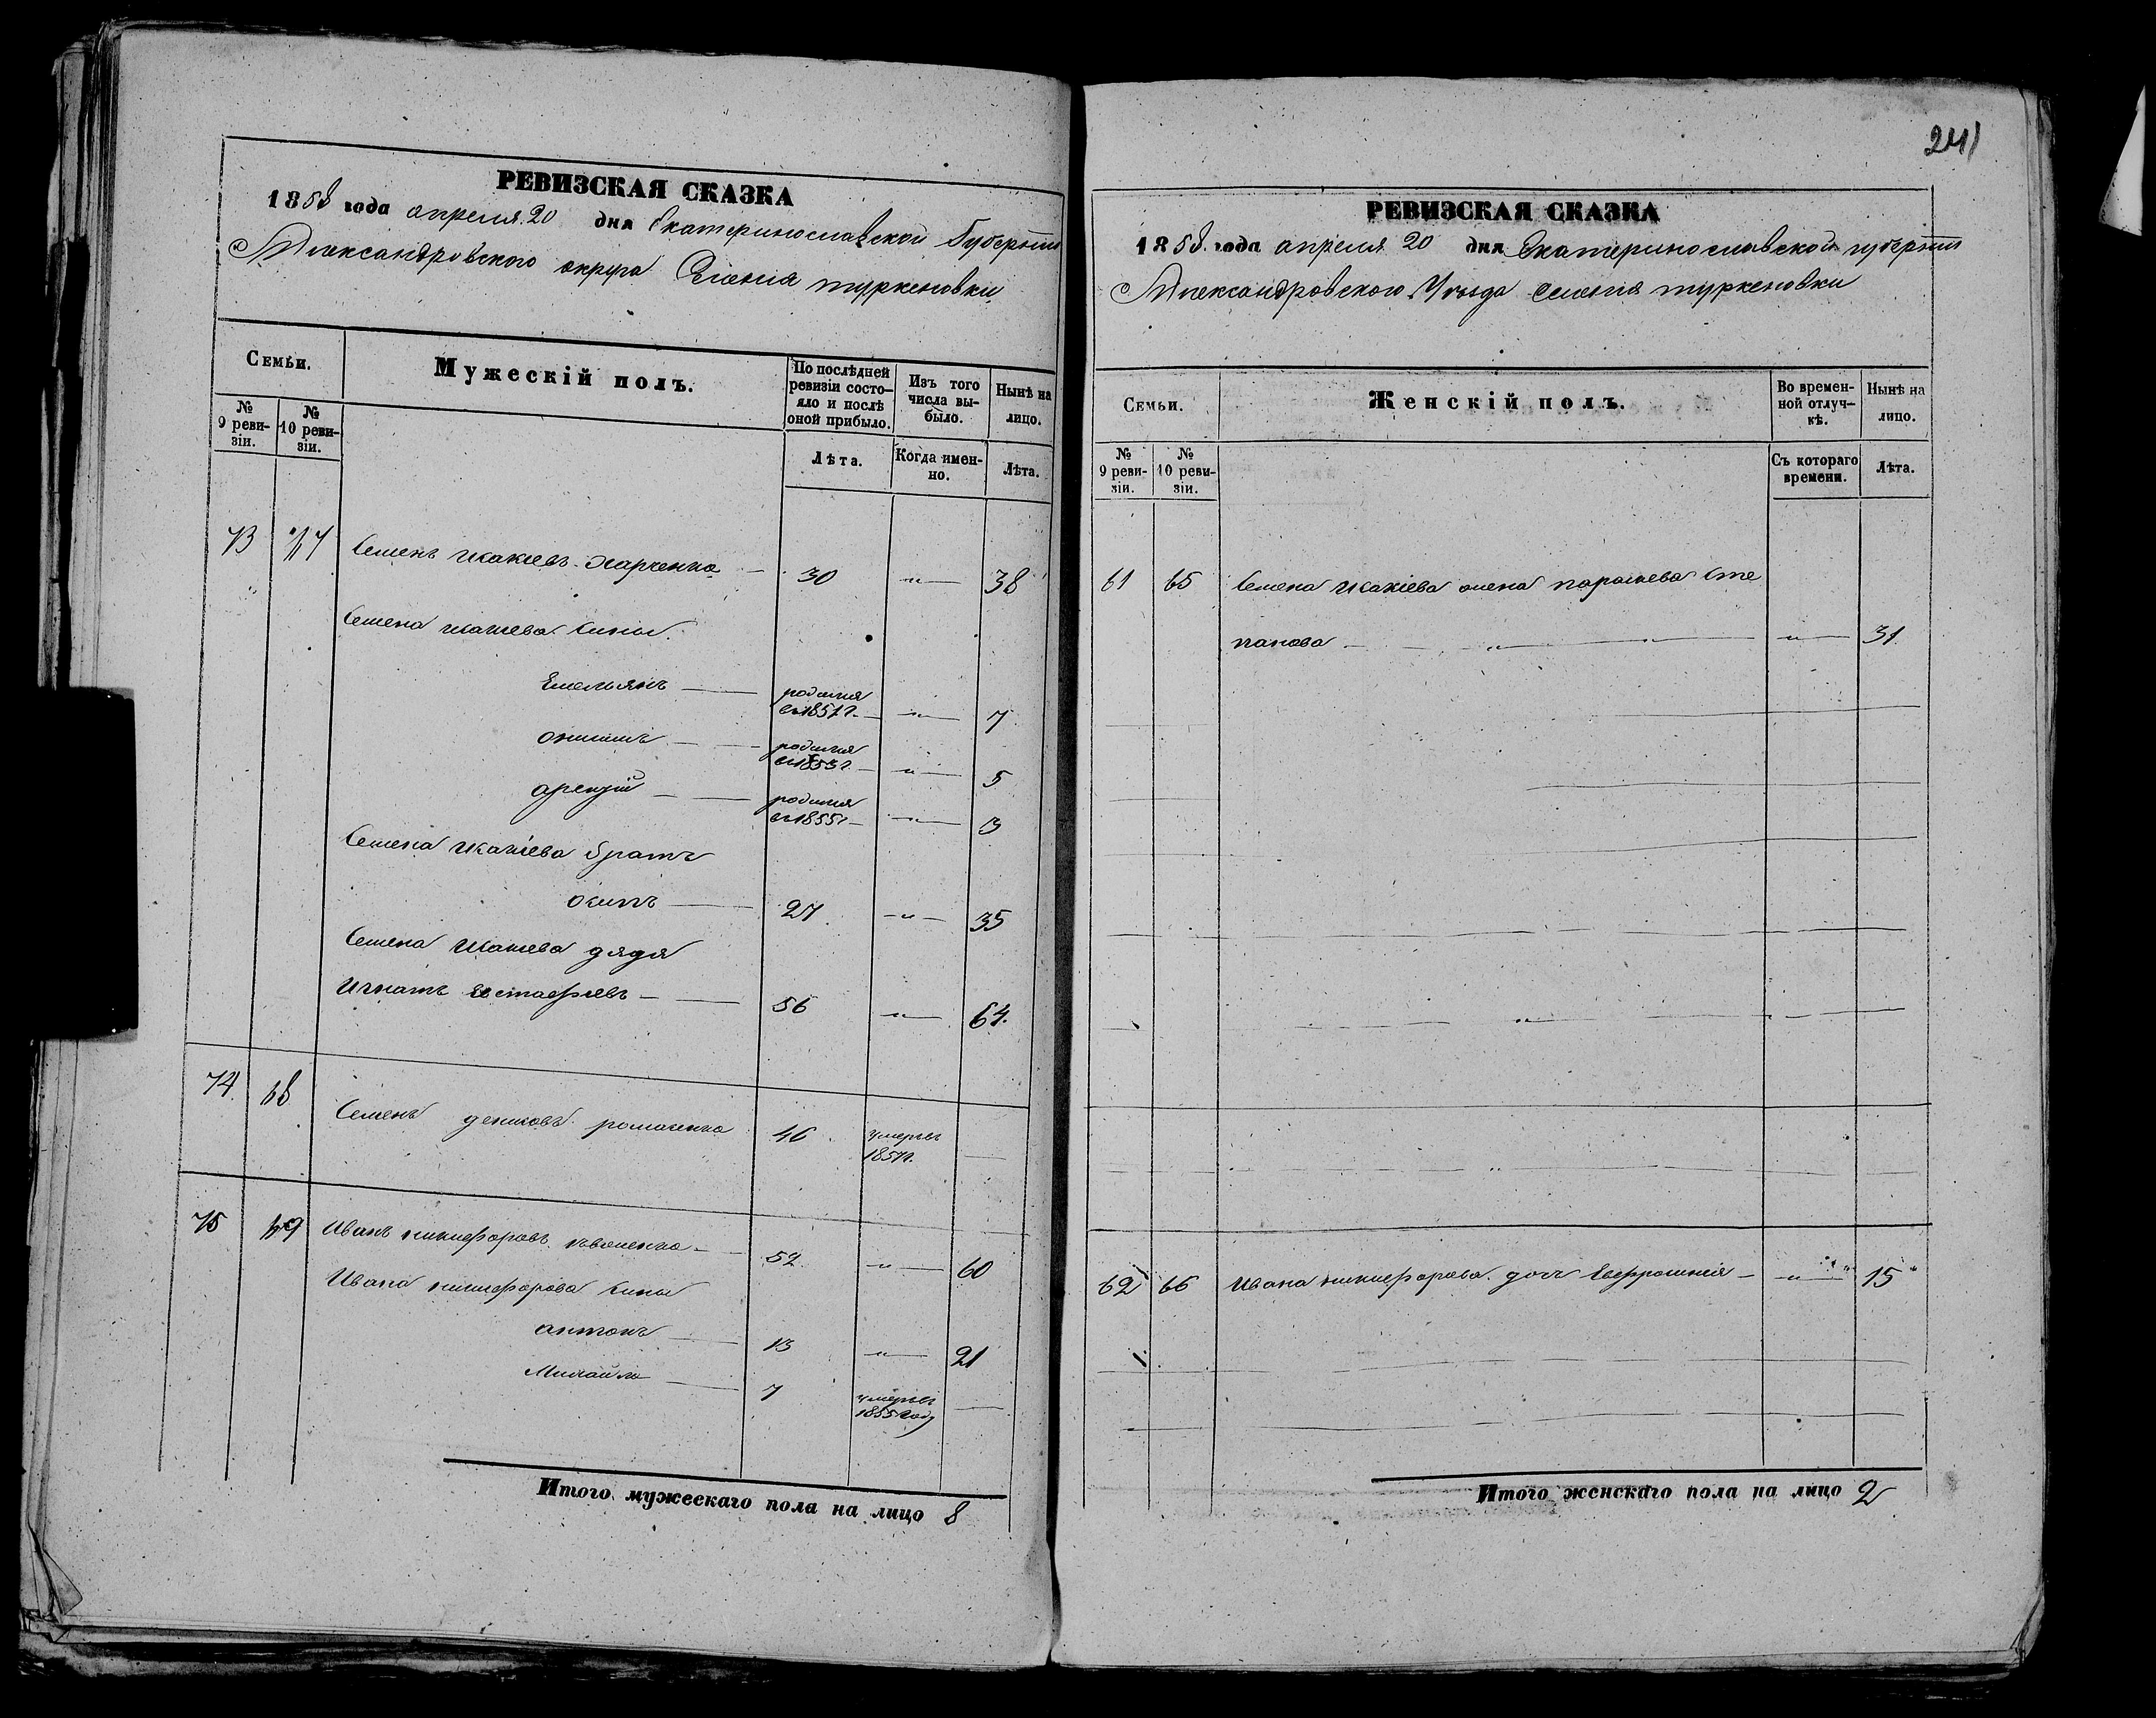 РЕВИЗСКАЯ СКАЗКА
1858 года апреля 20 дня Екатеринославской Губернии
Александровского округа Селения туркеновки
Семьи.
Мужескій полъ.
По послѣдней ревизіи состо-
яло и послѣ
оной прибыло.
Изъ того
числа вы-
было.
Нынѣ на
лицо.
№
9 реви-
зіи.
№
10 реви-
зіи.
Лѣта.
Когда имен-
но.
Лѣта.
73
Семенъ Икакіевъ Харченко — 30 — " — 38
Семена Икакіева Сины.
Емельянъ — родился
въ 1851 г. — " — 7
онисимъ — родился
въ 1853 г. — " — 5
арсентій — родился
въ 1855 г. — " — 3
Семена Икакіева братъ
осипъ — 27 — " — 35
Семена Икакіева дядя
Игнатъ Евстафіевъ — 56 — " — 64.
74 68 Семенъ денисовъ романенко 46 умеръ
185 г. —
75 69 Иванъ никифоровъ — 52 — " — 60
Ивана никифорова Сины
антонъ — 13 — " — 21
Михайло — 7 умеръ
1855 году —
Итого мужескаго пола на лицо 8
241
РЕВИЗСКАЯ СКАЗКА
1858 года апреля 20 дня Екатеринославской губернии
Александровского Уезда селения туркеновки
Семьи.
Женскій полъ.
Во времен-
ной отлуч-
кѣ.
Нынѣ на
лицо.
№
9 реви-
зіи.
№
10 реви-
зіи.
Съ котораго
времени.
Лѣта.
61 65 Семена Икакіева жена параскева Сте
панова — " — " — 31
62 66 Ивана никифорова дочь Евфросинія — " — 15
Итого женскаго пола на лицо 2